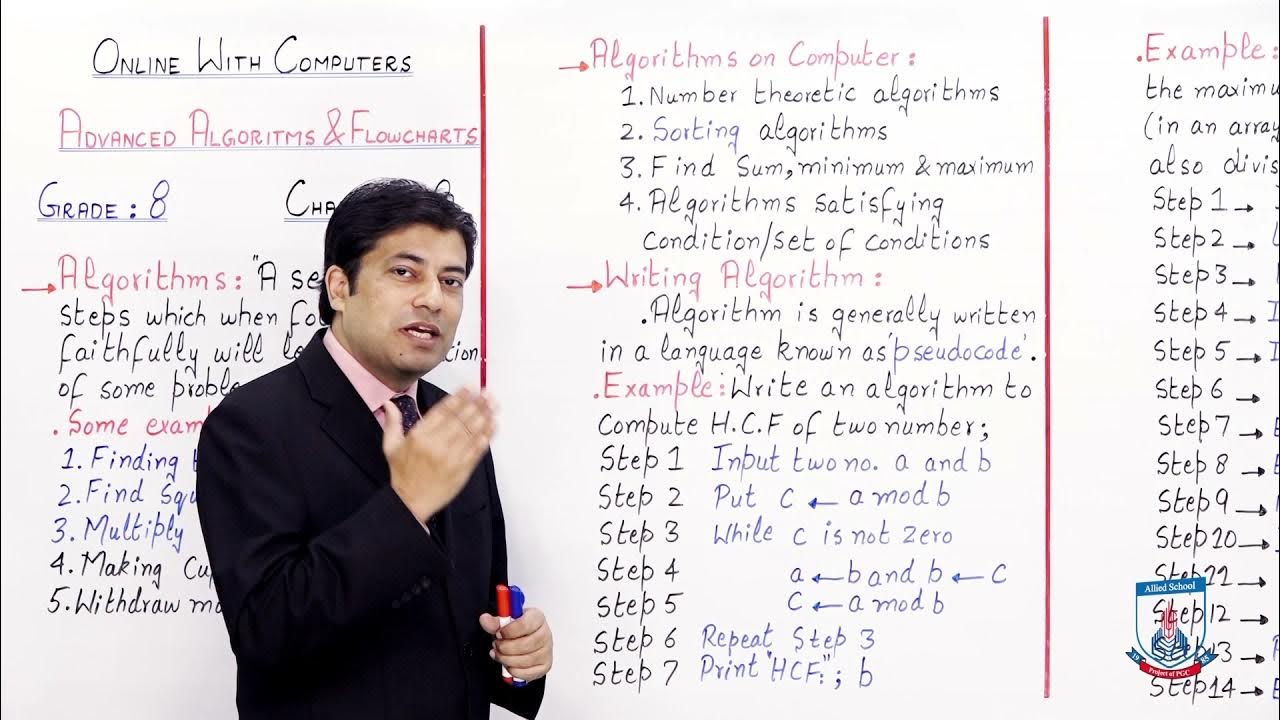 ONLINE WITH COMPUTERS
ADVANCED ALGORITMS & FLOWCHARTS
GRADE: 8
→ Algorithms: "A
steps which when
faithfully will
of some
. Some
1. Finding
2. Find
3. Multiply
4. Making
5. Withdraw
→ Algorithms on Computer:
1. Number theoretic algorithms
2. Sorting algorithms
3. Find Sum, minimum & maximum
4. Algorithms satisfying
Condition/set of conditions
→ Writing Algorithm:
. Algorithm is generally written
in a language known as 'pseudocode'.
. Example: Write an algorithm to
Compute H.C.F of two number;
Step 1 Input two no. a and b
Step 2 Put C ← a mod b
Step 3 While C is not Zero
Step 4 a ← b and b ← C
Step 5 C ← a mod b
Step 6 Repeat Step 3
Step 7 Print "HCF:"; b
. Example:
the
(in an array
also
Step 1 →
Step 2 →
Step 3 →
Step 4 →
Step 5 →
Step 6 →
Step 7 →
Step 8 →
Step 9 →
Step 10 →
Step 11 →
Step 12 →
Step14 →
Allied School
Project of PGC